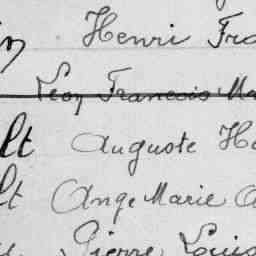 Henri Fra
Léon Francois Ma
lt Auguste H
lt Ange Marie A
Pierre Louis